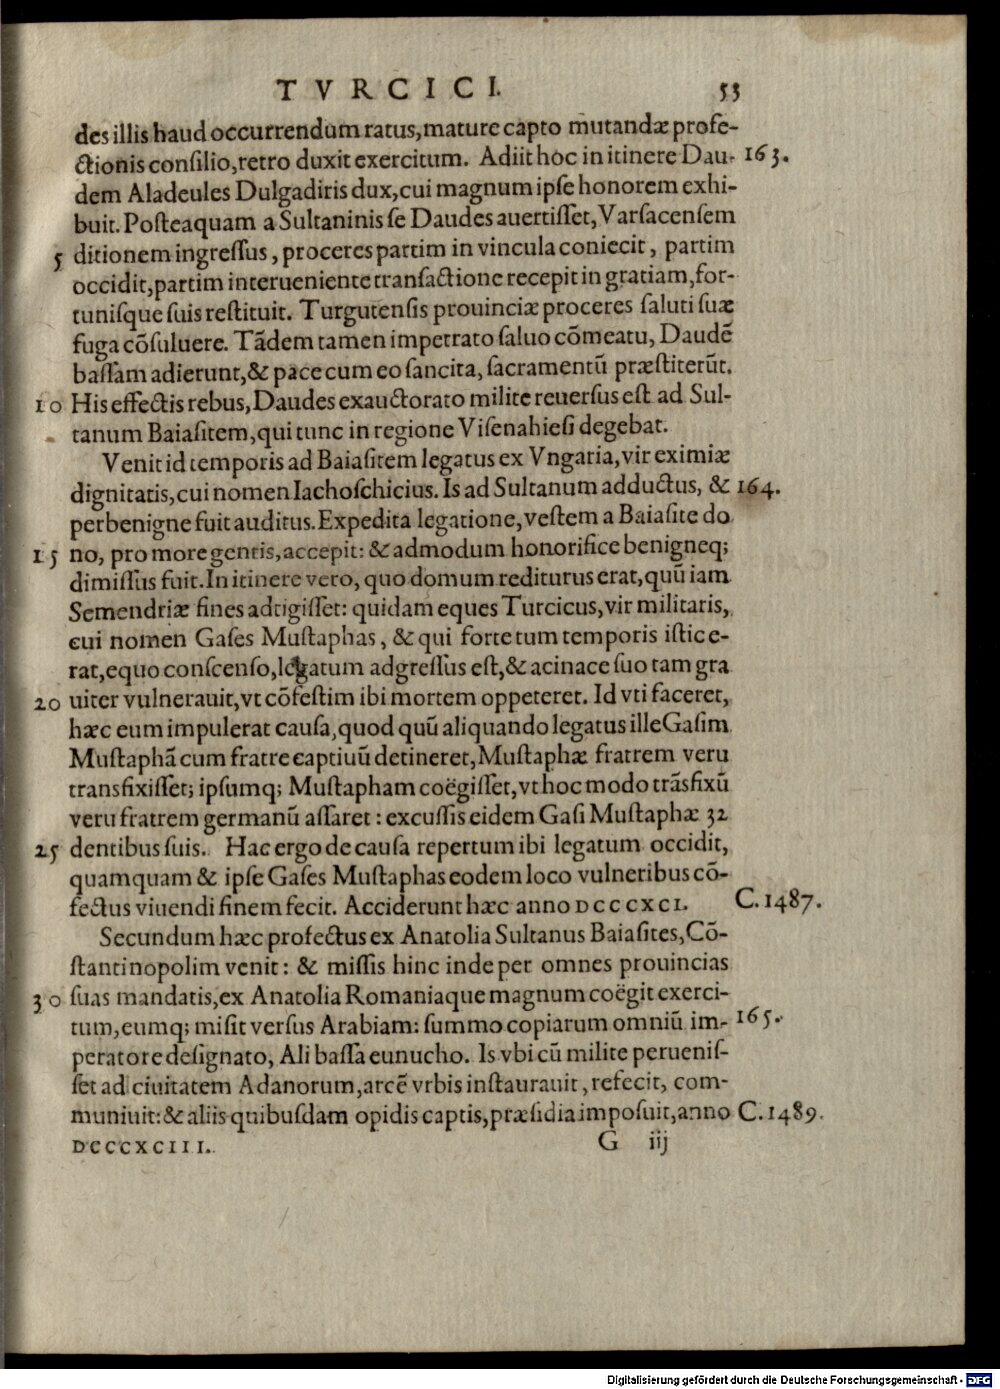 TVRCICI. 53
des illis haud occurrendum ratus, mature capto mutandæ profe-
ctionis consilio, retro duxit exercitum. Adiit hoc in itinere Dau- 163.
dem Aladeules Dulgadiris dux, cui magnum ipse honorem exhi-
buit. Posteaquam a Sultaninis se Daudes auertisset, Varsacensem
5 ditionem ingressus, proceres partim in vincula coniecit, partim
occidit, partim interueniente transactione recepit in gratiam, for-
tunisque suis restituit. Turgutensis prouinciæ proceres saluti suæ
fuga cõsuluere. Tãdem tamen impetrato saluo cõmeatu, Daudẽ
bassam adierunt, & pace cum eo sancita, sacramentũ præstiterũt.
10 His effectis rebus, Daudes exauctorato milite reuersus est ad Sul-
tanum Baiasitem, qui tunc in regione Visenahiesi degebat.
Venit id temporis ad Baiasitem legatus ex Vngaria, vir eximiæ
dignitatis, cui nomen Iachoschicius. Is ad Sultanum adductus, & 164.
perbenigne fuit auditus. Expedita legatione, vestem a Baiasite do
15 no, pro more gentis, accepit: & admodum honorifice benigneq;
dimissus fuit. In itinere vero, quo domum rediturus erat, quũ iam
Semendriæ fines adtigisset: quidam eques Turcicus, vir militaris,
cui nomen Gases Mustaphas, & qui forte tum temporis istic e-
rat, equo conscenso, legatum adgressus est, & acinace suo tam gra
20 uiter vulnerauit, vt cõfestim ibi mortem oppeteret. Id vti faceret,
hæc eum impulerat causa, quod quũ aliquando legatus ille Gasim
Mustaphã cum fratre captiuũ detineret, Mustaphæ fratrem veru
transfixisset; ipsumq; Mustapham coëgisset, vt hoc modo trãsfixũ
veru fratrem germanũ assaret: excussis eidem Gasi Mustaphæ 32
25 dentibus suis. Hac ergo de causa repertum ibi legatum occidit,
quamquam & ipse Gases Mustaphas eodem loco vulneribus cõ-
fectus viuendi finem fecit. Acciderunt hæc anno DCCCXCI. C. 1487.
Secundum hæc profectus ex Anatolia Sultanus Baiasites, Cõ-
stantinopolim venit: & missis hinc inde per omnes prouincias
30 suas mandatis, ex Anatolia Romaniaque magnum coëgit exerci-
tum, eumq; misit versus Arabiam: summo copiarum omniũ im- 165.
peratore designato, Ali bassa eunucho. Is vbi cũ milite peruenis-
set ad ciuitatem Adanorum, arcẽ vrbis instaurauit, refecit, com-
muniuit: & aliis quibusdam opidis captis, præsidia imposuit, anno C. 1489.
DCCCXCIII. G iij
Digitalisierung gefördert durch die Deutsche Forschungsgemeinschaft - DFG